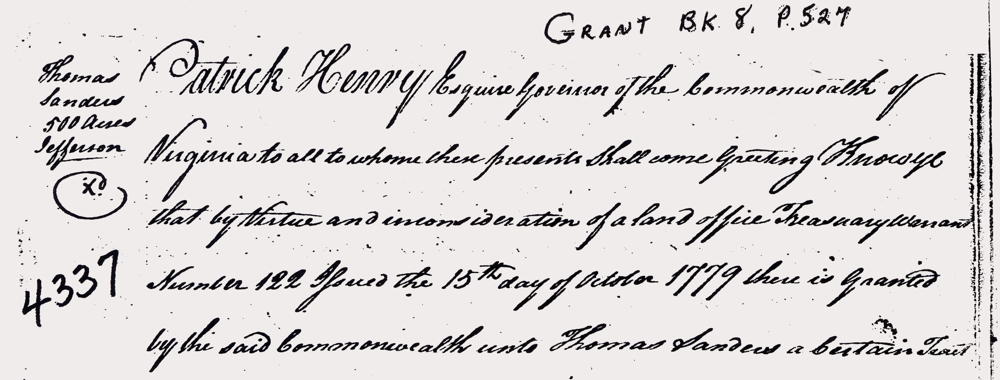 GRANT BK 8, P. 527
Thomas
Sanders
500 Acres
Jefferson
Xd
4337
Patrick Henry Esquire Governor of the Commonwealth of
Virginia to all to whome these presents Shall come Greeting Know ye
that by Virtue and in consideration of a land office Treasuary Warrant
Number 122 Issued the 15th day of October 1779 there is Granted
by the said Commonwealth unto Thomas Sanders a Certain Tract